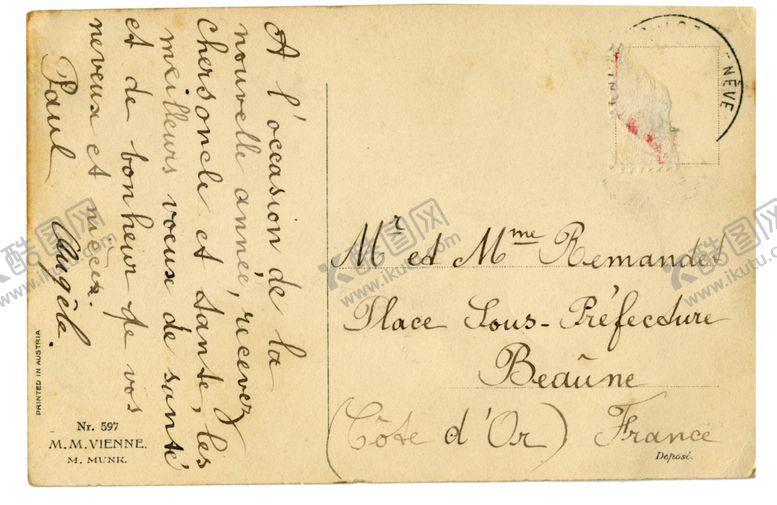 A l'occasion de la
nouvelle année, recevez
chers oncle et tante, les
meilleurs voeux de santé
et de bonheur de vos
neveux et nièces.
Paul Angèle.
NÈVE
Mr et Mme Remandet
Place Sous-Préfecture
Beaune
(Côte d'Or) France
Deposé.
PRINTED IN AUSTRIA
Nr. 597
M. M. VIENNE.
M. MUNK.
酷图网
www.ikutu.com
酷图网
www.ikutu.com
酷图网
www.ikutu.com